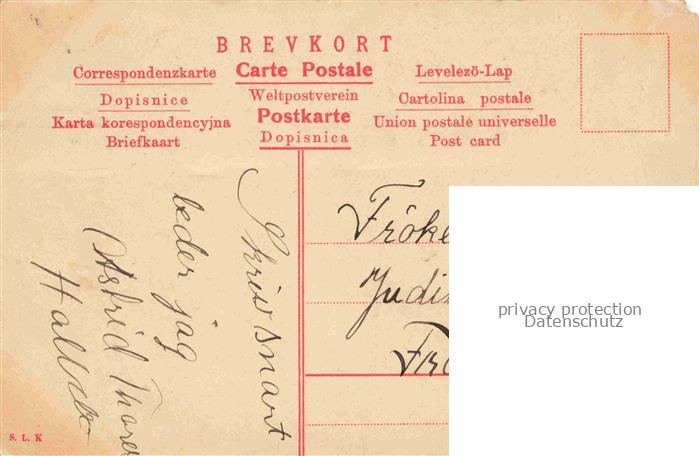 BREVKORT
Correspondenzkarte Carte Postale Levelező-Lap
Dopisnice Weltpostverein Cartolina postale
Karta korespondencyjna Postkarte Union postale universelle
Briefkaart Dopisnica Post card
Skriv snart
beder jag
Astrid Thore
Fröke
Judi
Frö
privacy protection
Datenschutz
S. L. K